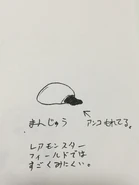 まんじゅう
アンコもれてる。
レアモンスター
フィールドでは
すごくみにくい。